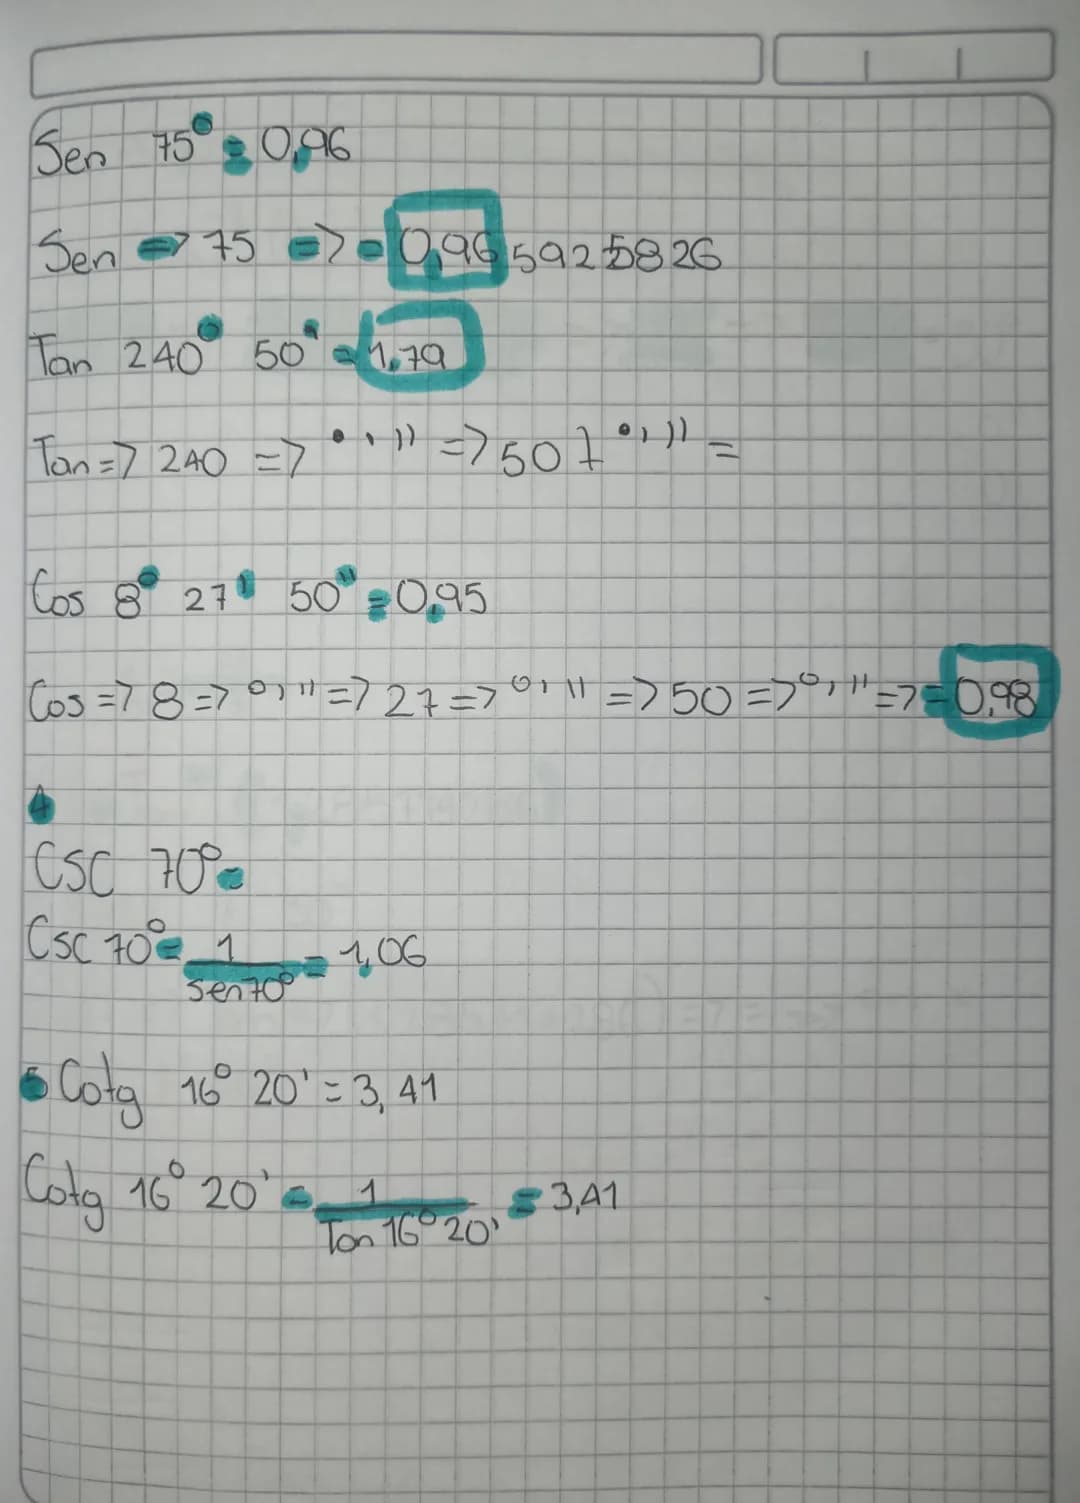 Sen 75° = 0,96
Sen => 75 => = 0,96 5925826
Tan 240° 50' = 1,79
Tan => 240 => °'" => 50 °'" =
Cos 8° 27' 50" = 0,95
Cos => 8 => °'" => 27 => °'" => 50 => °'" => = 0,98
4
CSC 70° =
Csc 70° = 1 / Sen 70° = 1,06
5 Cotg 16° 20' = 3,41
Cotg 16° 20' = 1 / Tan 16° 20' = 3,41